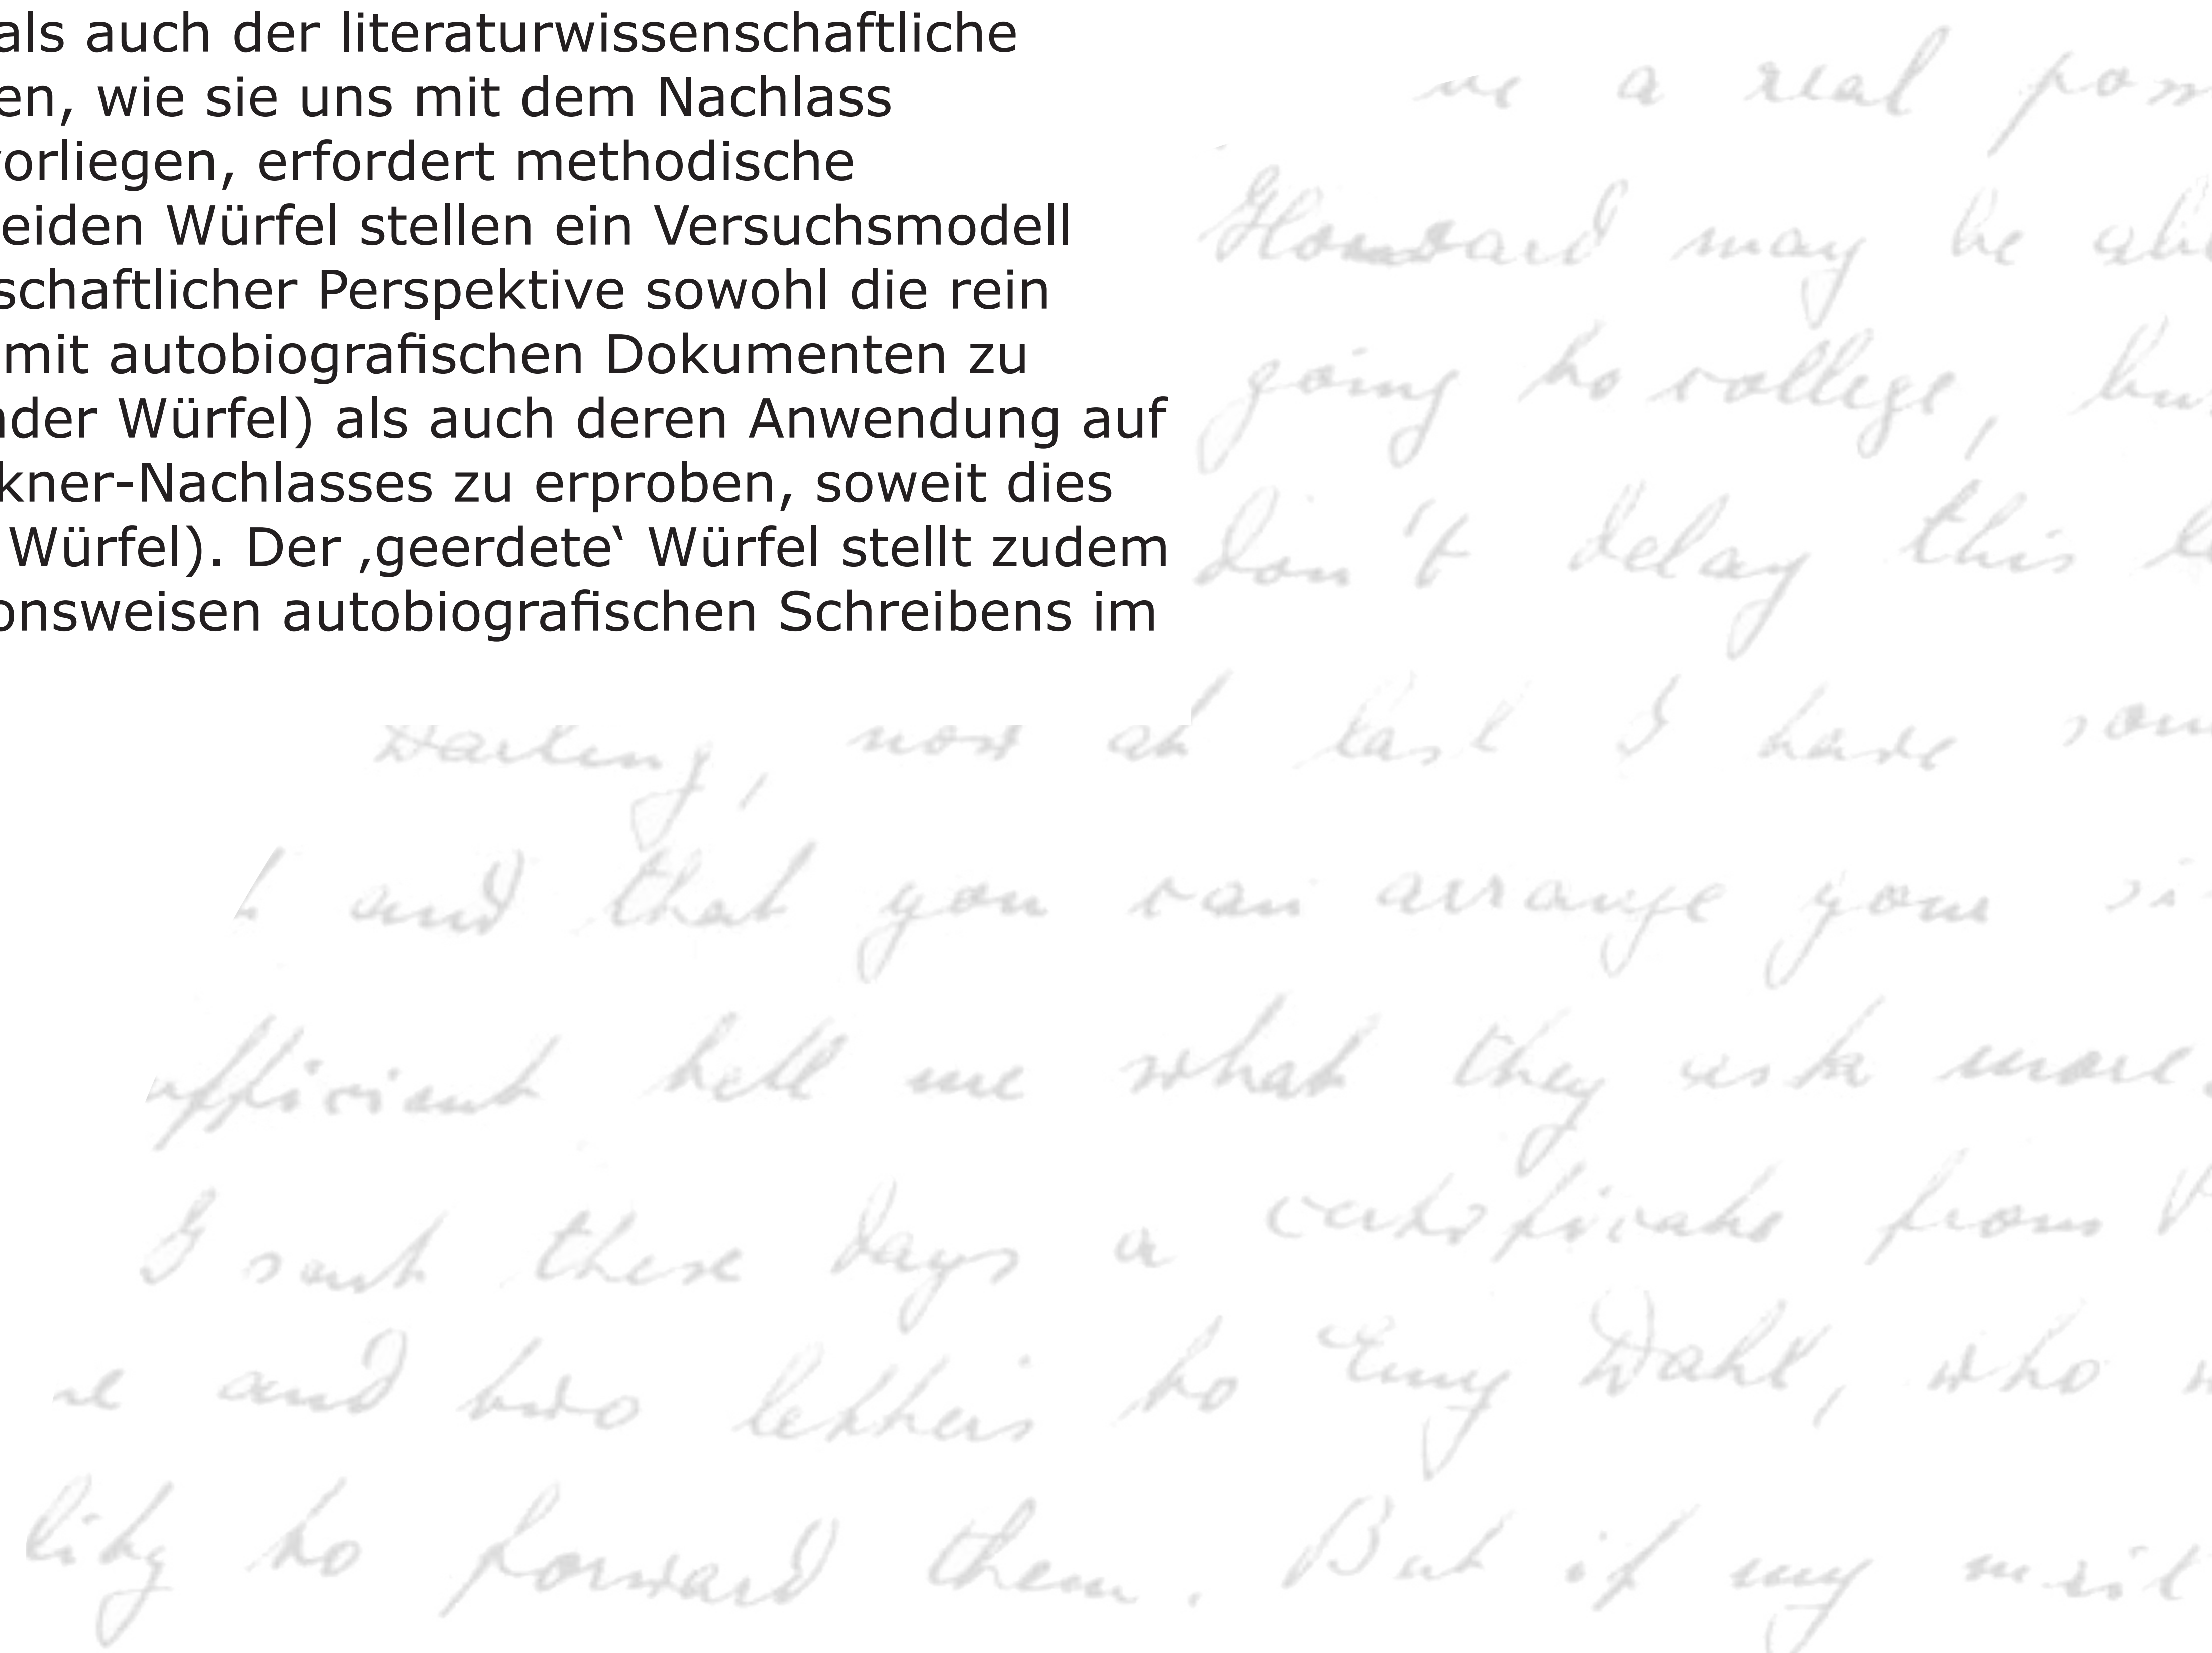 als auch der literaturwissenschaftliche
en, wie sie uns mit dem Nachlass
vorliegen, erfordert methodische
eiden Würfel stellen ein Versuchsmodell
schaftlicher Perspektive sowohl die rein
mit autobiografischen Dokumenten zu
nder Würfel) als auch deren Anwendung auf
kner-Nachlasses zu erproben, soweit dies
Würfel). Der ‚geerdete‘ Würfel stellt zudem
onsweisen autobiografischen Schreibens im
a real
may be
going to college,
don't delay this
Darling, now at last I have
and that you can arrange your
tell me what they ask more.
I sent these days a certificate from
and two letters to Emy Dahl, who
to forward them. But if my